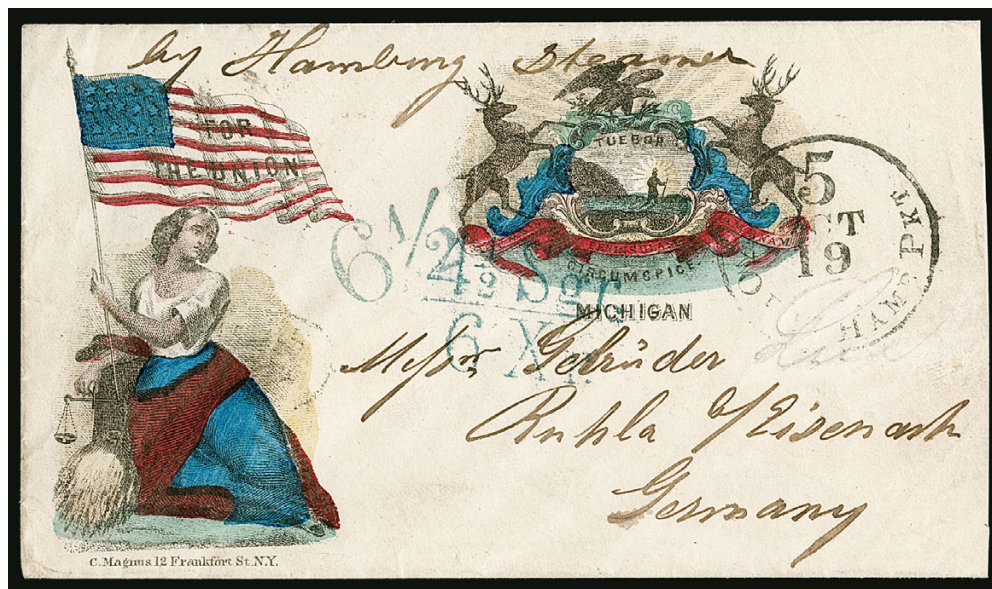 by Hamburg Steamer
FOR
THE UNION
TUEBOR
CIRCUMSPICE
MICHIGAN
5
19
HAMB PKT
6 1/2
4 1/2 Sgr
6 Xr.
Messrs Gebrüder
Ruhla a/Eisenach
Germany
C. Magnus 12 Frankfort St. N.Y.